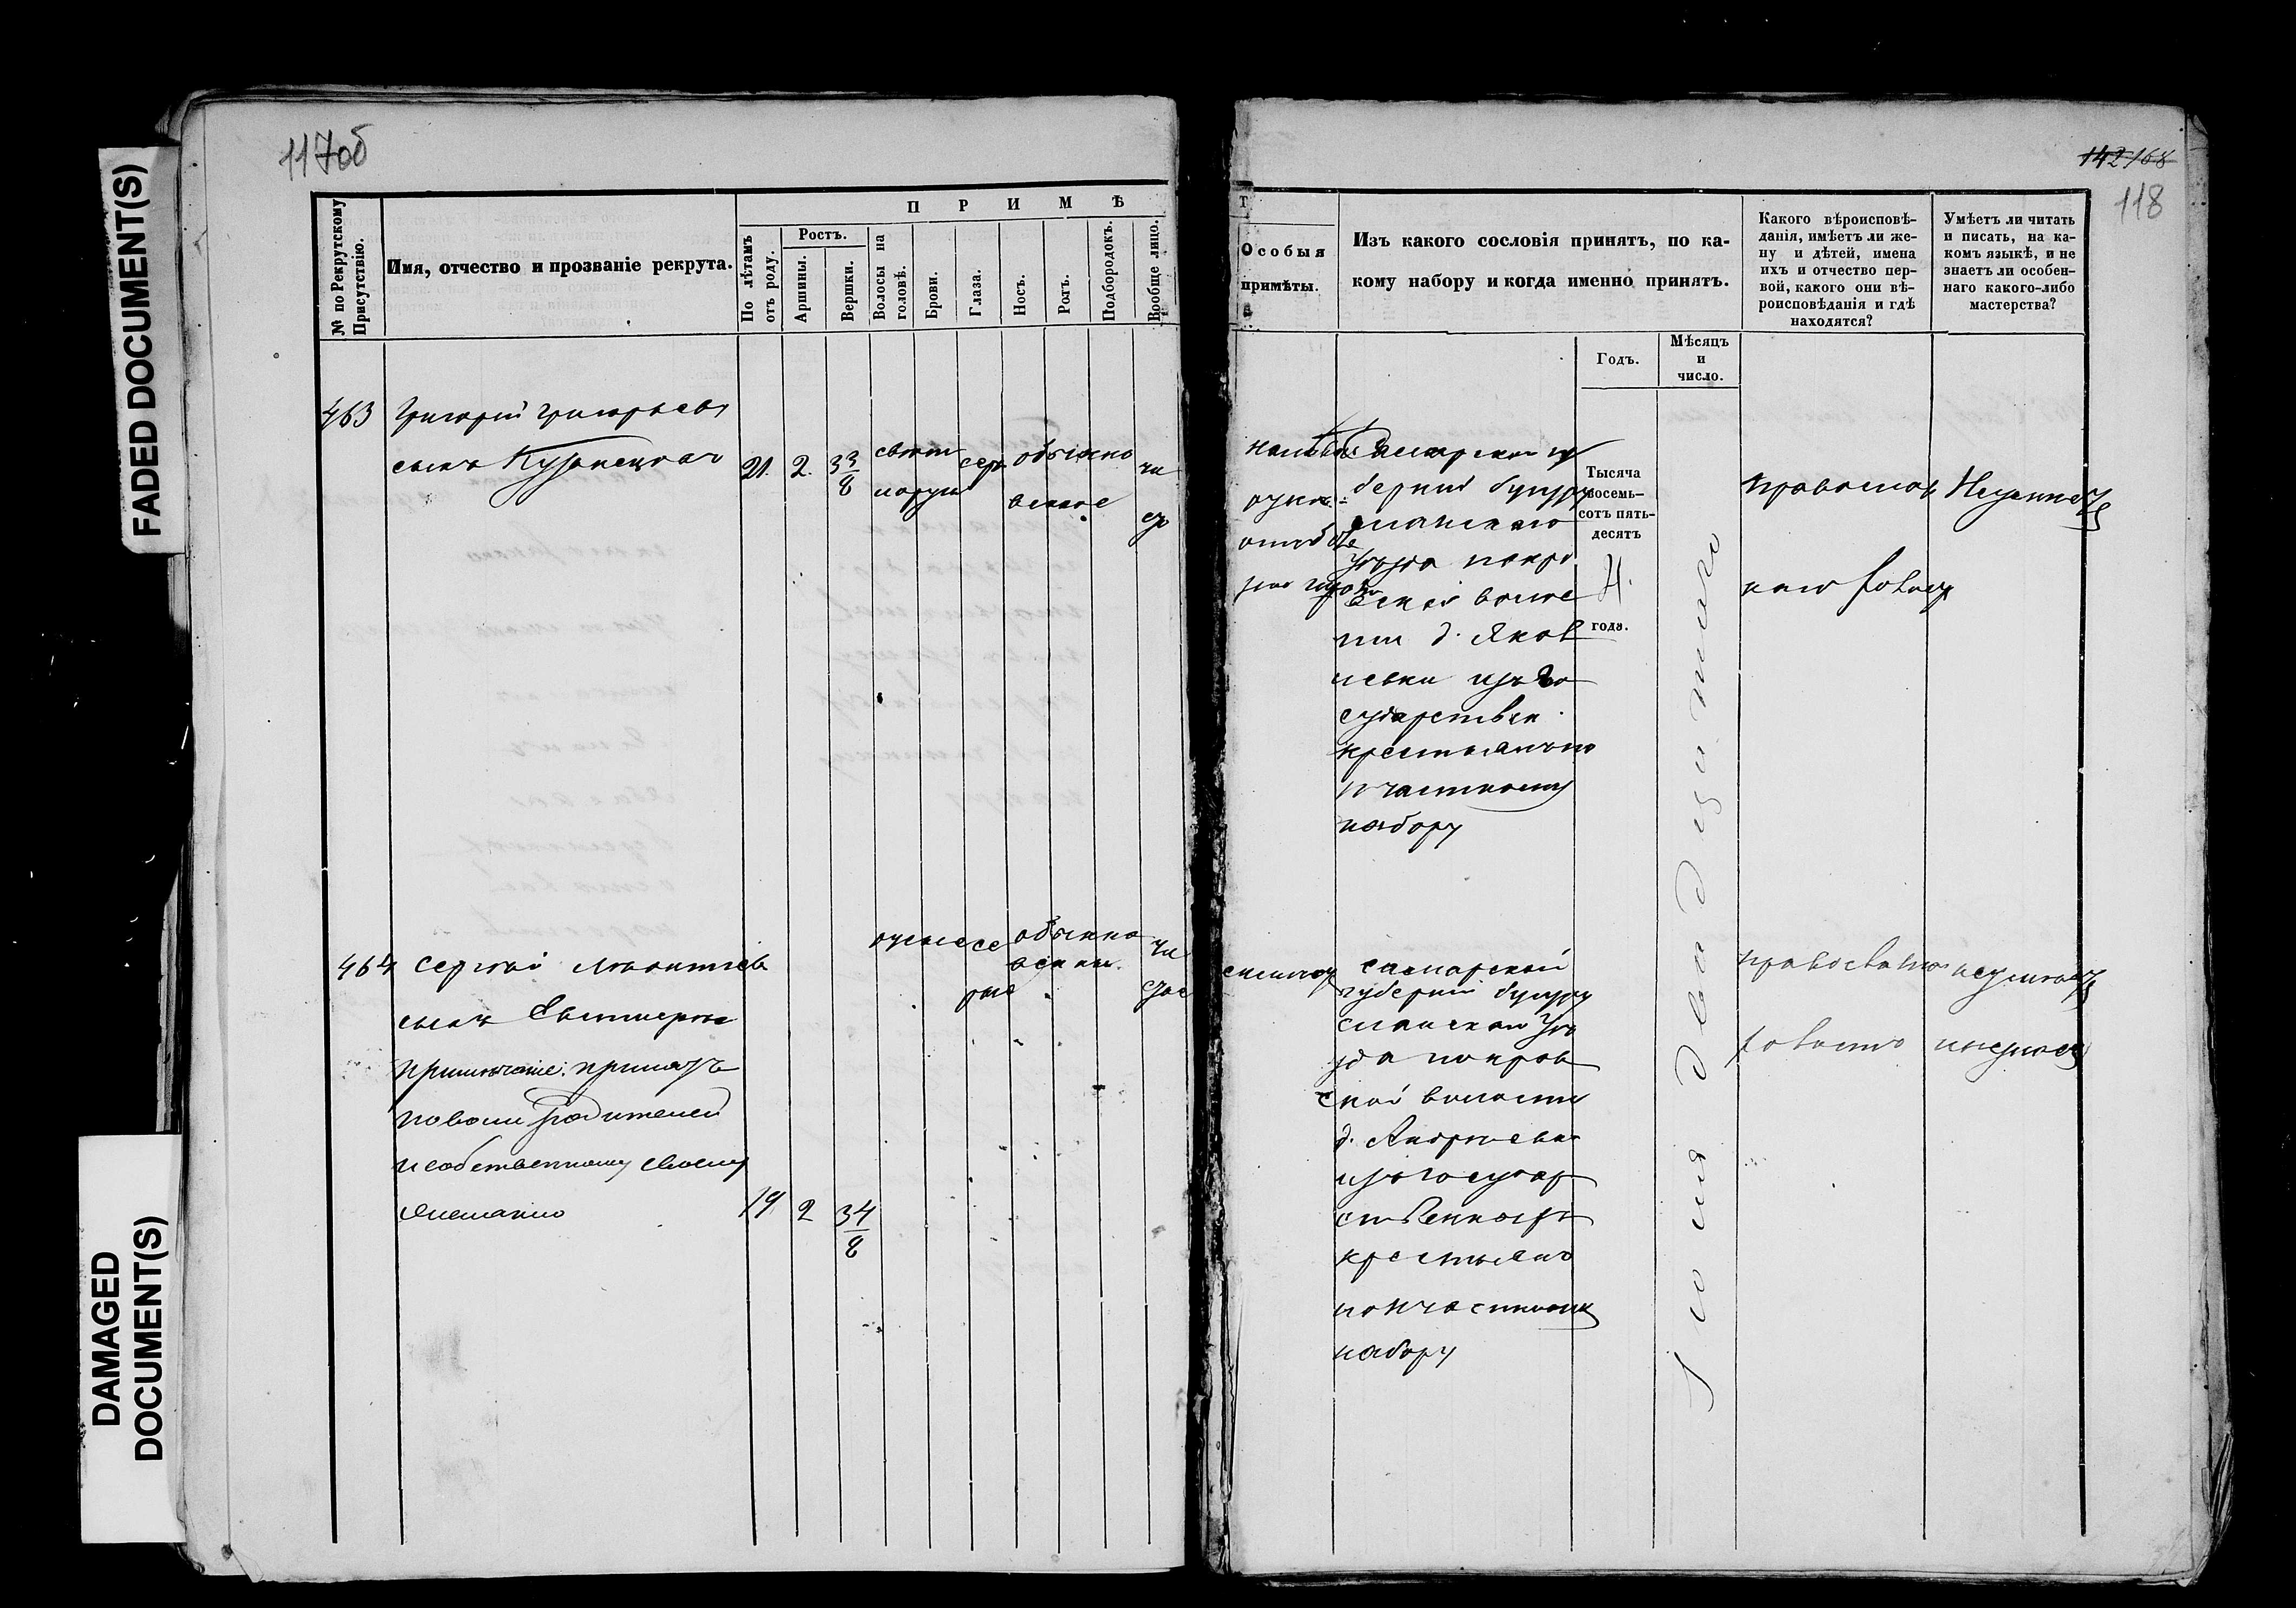 FADED DOCUMENT(S)
DAMAGED
DOCUMENT(S)
117об
№ по Рекрутскому
Присутствію.
Имя, отчество и прозваніе рекрута.
П Р И М Ѣ
По лѣтамъ
отъ роду.
Ростъ.
Аршины.
Вершки.
Волосы на
головѣ.
Брови.
Глаза.
Носъ.
Ротъ.
Подбородокъ.
Вообще лицо.
463 Григорій Григорьевъ
сынъ Кузнецовъ
21. 2. 3 3/8
свѣтло
сер обыкно чи
венное
464 Сергѣй Леонтьевъ
сынъ
примѣчаніе: принятъ
по воли родителей
и собственному своему
желанію
19 2 3 4/8
русые се обыкно чи
рые венны. стое
142 168
118
Т
Особыя
примѣты.
Изъ какого сословія принятъ, по ка-
кому набору и когда именно принятъ.
Какого вѣроисповѣ-
данія, имѣетъ ли же-
ну и дѣтей, имена
ихъ и отчество пер-
вой, какого они вѣ-
роисповѣданія и гдѣ
находятся?
Умѣетъ ли читать
и писать, на ка-
комъ языкѣ, и не
знаетъ ли особен-
наго какого-либо
мастерства?
Годъ.
Мѣсяцъ
и
число.
Тысяча
восемь-
сотъ пять-
десятъ
4.
года.
Самарской гу
берніи бугуру
сланскаго
уѣзда покро
вской волос
ти д. Яков
левки изъ го
сударствен
крестьянъ по
11 частному
набору
Іюля двадцатаго
православ
наго холост
Неумѣетъ
самарской
губерніи бугуру
сланскаго уѣ
зда покров
ской волости
д.
изъ государ
ственныхъ
крестьянъ
по 11 частному
набору
православнаго
холостъ
неумѣетъ